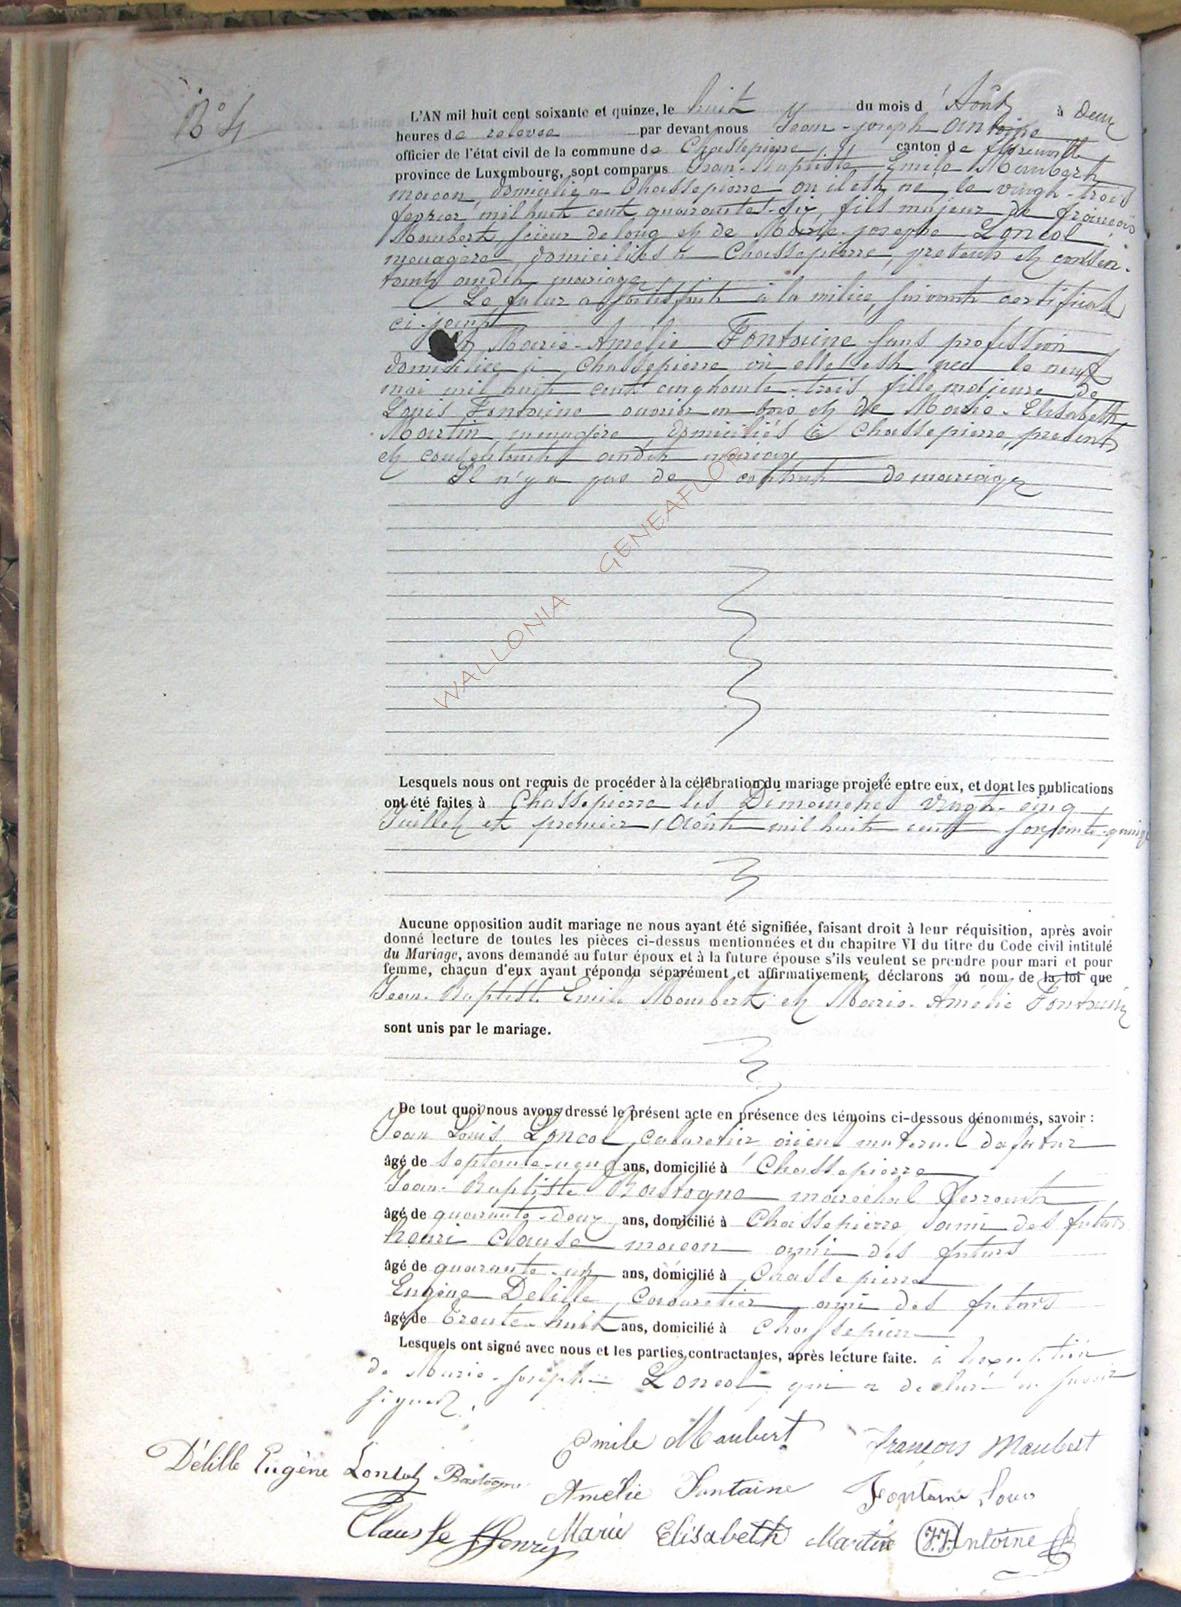 N° 4
L'AN mil huit cent soixante et quinze, le huit du mois d'Août à deux
heures de relevée par devant nous Jean-Joseph Antoine
officier de l'état civil de la commune de Chassepierre canton de Florenville
province de Luxembourg, sont comparus Jean-Baptiste Emile Maubert
maçon, domicilié à Chassepierre où il est né le vingt-trois
février mil huit cent quarante-six, fils majeur de François
Maubert, scieur de long et de Marie-Josephe Loncol
ménagère, domiciliés à Chassepierre, présents et consen-
tants audit mariage
Le futur a satisfait à la milice, suivant certificat
ci-joint
Et Marie-Amélie Fontaine sans profession
domiciliée à Chassepierre où elle est née le neuf
mai mil huit cent cinquante-trois, fille majeure de
Louis Fontaine ouvrier en bois et de Marie-Elisabeth
Martin, ménagère, domiciliés à Chassepierre, présents
et consentants audit mariage
Il n'y a pas de contrat de mariage
WALLONIA GENEAFLOR
Lesquels nous ont requis de procéder à la célébration du mariage projeté entre eux, et dont les publications
ont été faites à Chassepierre les Dimanches vingt-cinq
Juillet et premier Août mil huit cent soixante-quinze
Aucune opposition audit mariage ne nous ayant été signifiée, faisant droit à leur réquisition, après avoir
donné lecture de toutes les pièces ci-dessus mentionnées et du chapitre VI du titre du Code civil intitulé
du Mariage, avons demandé au futur époux et à la future épouse s'ils veulent se prendre pour mari et pour
femme, chacun d'eux ayant répondu séparément et affirmativement, déclarons au nom de la loi que
Jean-Baptiste Emile Maubert et Marie-Amélie Fontaine
sont unis par le mariage.
De tout quoi nous avons dressé le présent acte en présence des témoins ci-dessous dénommés, savoir :
Jean Louis Loncol, cabaretier oncle maternel du futur
âgé de septante-neuf ans, domicilié à Chassepierre
Jean-Baptiste Bastogne maréchal ferrant
âgé de quarante-deux ans, domicilié à Chassepierre, ami des futurs
Henri Clausse maçon ami des futurs
âgé de quarante-un ans, domicilié à Chassepierre
Eugène Delille, Cabaretier, ami des futurs
âgé de trente-huit ans, domicilié à Chassepierre
Lesquels ont signé avec nous et les parties contractantes, après lecture faite. à l'exception
de Marie-Joseph Loncol qui a déclaré ne savoir
signer.
Emile Maubert François Maubert
Délille Eugène Loncol Bastogne Amélie Fontaine Fontaine Louis
Clausse Henry Marie Elisabeth Martin J.J. Antoine